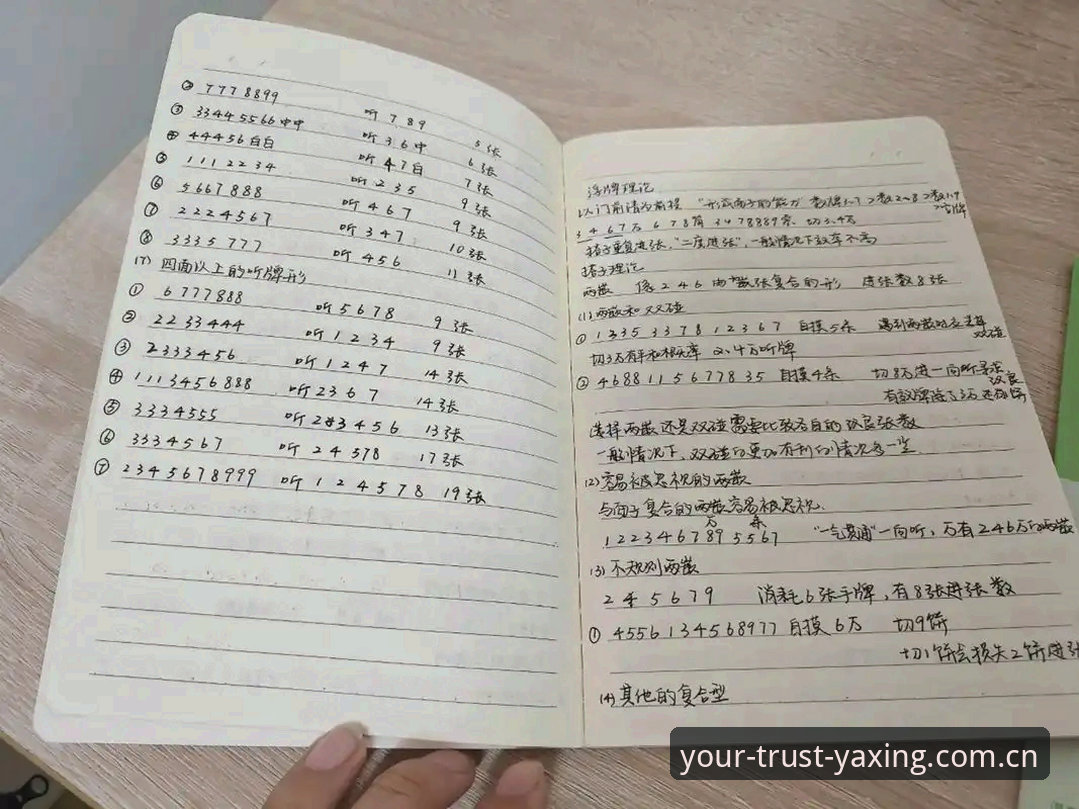 ② 7778899 听 7 8 9 5张
③ 33445566中中 听 3 6 中 6张
④ 44456白白 听 4 7 白 7张
⑤ 1112234 听 2 3 5 9张
⑥ 5667888 听 4 6 7 9张
⑦ 2224567 听 3 4 7 10张
⑧ 3335777 听 4 5 6 11张
四面以上的听牌形
① 6777888 听 5 6 7 8 9张
② 2233444 听 1 2 3 4 9张
③ 2333456 听 1 2 4 7 14张
④ 1113456888 听 2 3 6 7 14张
⑤ 3334555 听 2 3 4 5 6 13张
⑥ 3334567 听 2 4 5 7 8 17张
⑦ 2345678999 听 1 2 4 5 7 8 19张
浮牌理论
以门前清为前提 "形成面子的能力" 数牌3~7 > 数2~8 > 数1.9
>字牌
3 4 6 7万 6 7 8筒 3 4 7 8 8 8 9条 切3.4万
搭子重复进张,"二度进张",一般情况下效率不高
搭子理论
两嵌 像 2 4 6 两嵌张复合的形 进张数8张
(1)两嵌和双碰
① 1 2 3 5 3 3 7 8 1 2 3 6 7 自摸5条
双碰
2、4万听牌
② 4 6 8 8 1 1 5 6 7 7 8 3 5 自摸4条 切8万进一向听
改良
选择两嵌还是双碰需要比较各自的改良张数
一般情况下,双碰的更加有利的情况多一些
(2)容易被忽视的两嵌
与面子复合的两嵌容易被忽视.
万 条
1 2 2 3 4 6 7 8 9 5 5 6 7 "一气贯通"一向听,万有246万的两嵌
(3)不规则两嵌
2 4 5 6 7 9 消耗6张手牌,有8张进张数
① 4 5 5 6 1 3 4 5 6 8 9 7 7 自摸6万 切9饼
切1饼会损失2饼进张
(4)其他的复合型
your-trust-yaxing.com.cn